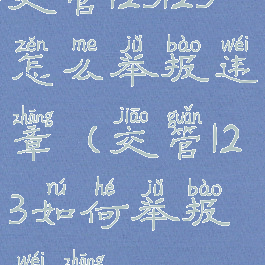 交管12123
zěn me jǔ bào wéi
怎么举报违
zhāng jiāo guǎn
章(交管12
nú hé jǔ bào
3如何举报
wéi zhāng